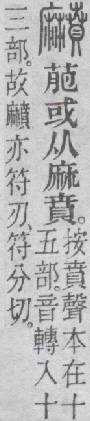 黂
萉或从麻賁。
按賁聲本在十
五部。音轉入十
三部。故黂亦符刃、符分切。